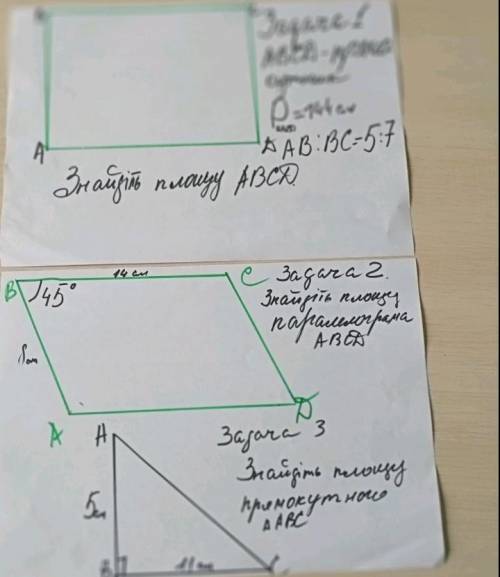 Задача 1
ABCD - прямо
кутник
P = 144 см
ABCD
A
D
AB : BC = 5 : 7
Знайдіть площу ABCD.
14 см
B
C
45°
Задача 2.
Знайдіть площу
паралелограма
ABCD
A
D
A
Задача 3
5см
Знайдіть площу
прямокутного
ΔABC
B
11 см
C